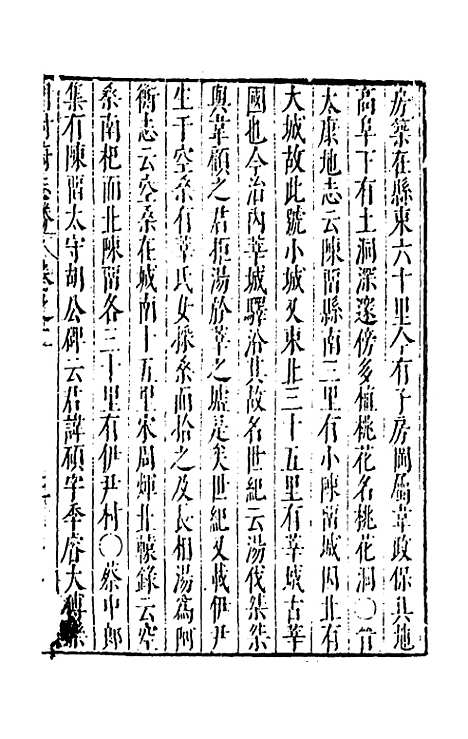 房築在縣東六十里今有子房岡屬韋政保其地
高阜下有土洞深邃傍多植桃花名桃花洞〇晉
太康地志云陳留縣南三里有小陳留城因北有
大城故此號小城又東北三十五里有莘城古莘
國也今治內莘城驛沿其故名世紀云湯伐桀桀
與韋顧之君拒湯於莘之墟是矣世紀又載伊尹
生于空桑有莘氏女採桑而拾之及長相湯為阿
衡志云空桑在城南十五里宋周煇北轅錄云空
桑南杞而北陳留各三十里有伊尹村〇蔡中郎
集有陳留太守胡公碑云君諱碩字季睿大傅